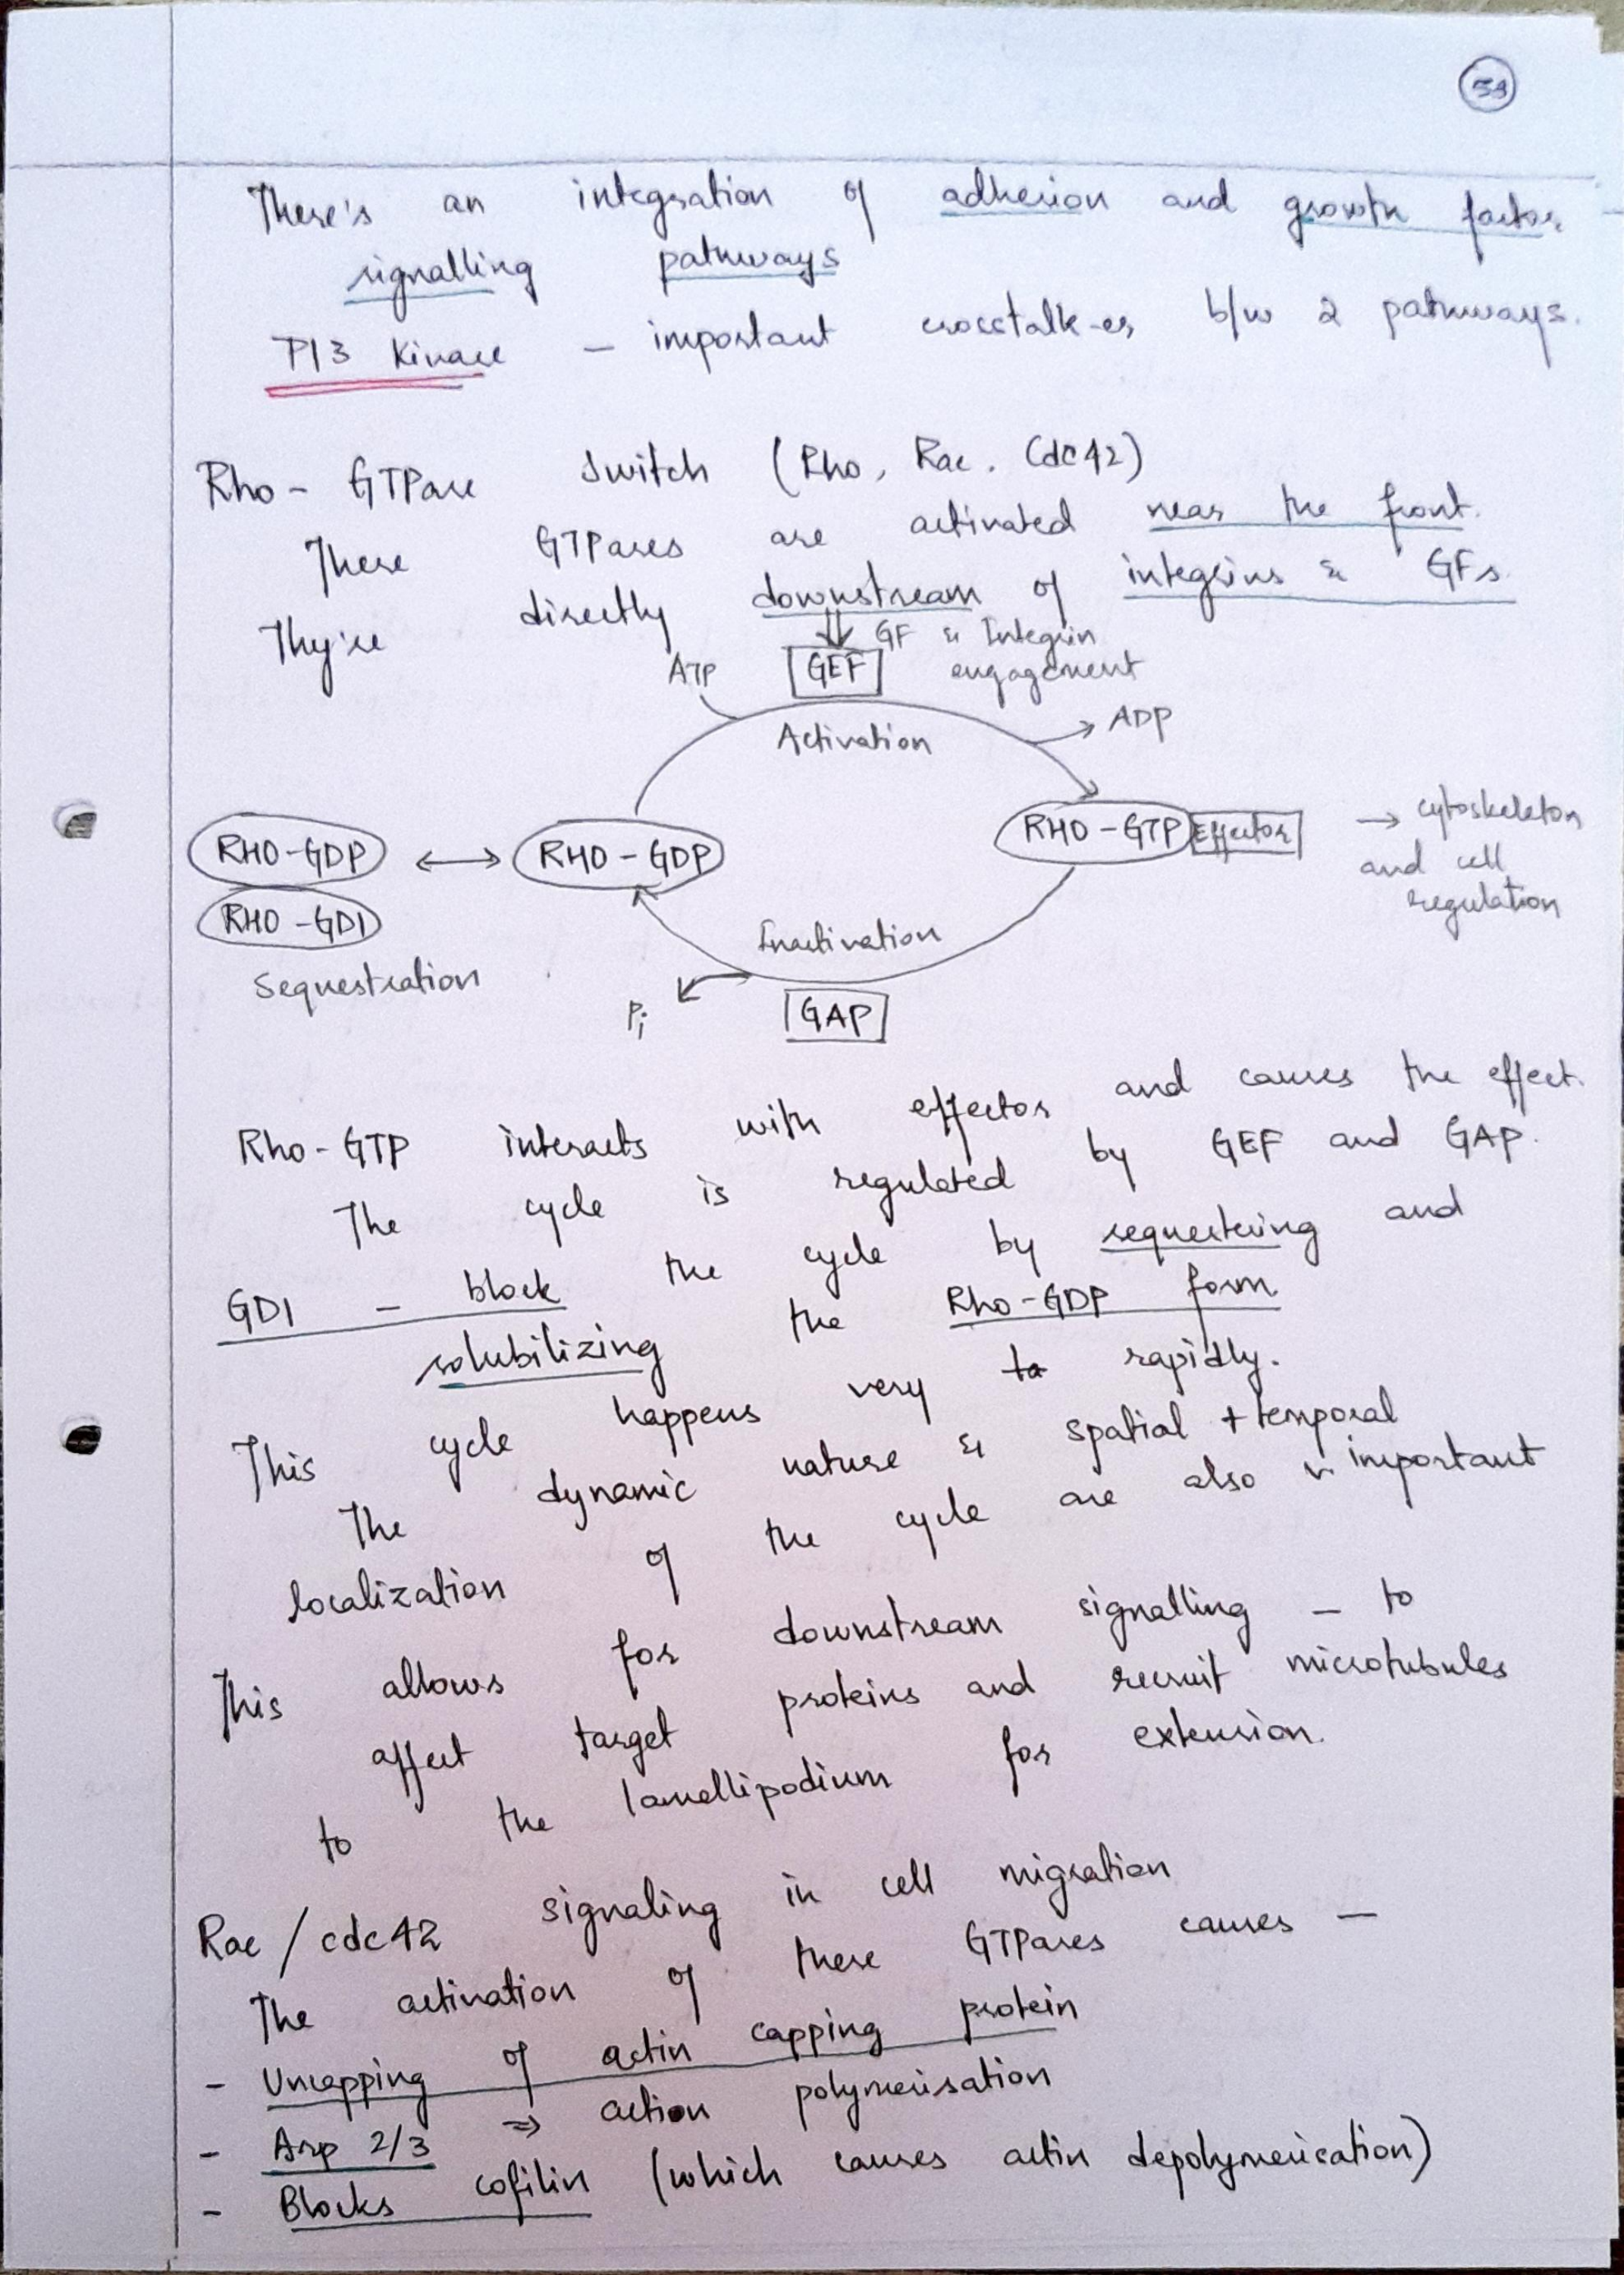 59
There's an integration of adhesion and growth factor
signalling pathways
PI3 Kinase - important crosstalk-er b/w 2 pathways.
Rho - GTPase switch (Rho, Rac, Cdc42)
These GTPases are activated near the front.
They're directly downstream of integrins & GFs.
GF & Integrin
engagement
ATP
GEF
Activation
ADP
RHO-GDP ↔ RHO-GDP
RHO-GTP Effector → cytoskeleton
and cell
regulation
RHO-GDI
Inactivation
Sequestration
Pi
GAP
Rho-GTP interacts with effector and causes the effect.
The cycle is regulated by GEF and GAP.
GDI - block the cycle by sequestering and
solubilizing the Rho-GDP form
This cycle happens very to rapidly.
The dynamic nature & spatial + temporal
localization of the cycle are also v. important
This allows for downstream signalling - to
affect target proteins and recruit microtubules
to the lamellipodium for extension.
Rac / cdc42 signaling in cell migration
The activation of these GTPases causes -
- Uncapping of actin capping protein
- Arp 2/3 ⇒ action polymerisation
- Blocks cofilin (which causes actin depolymerisation)